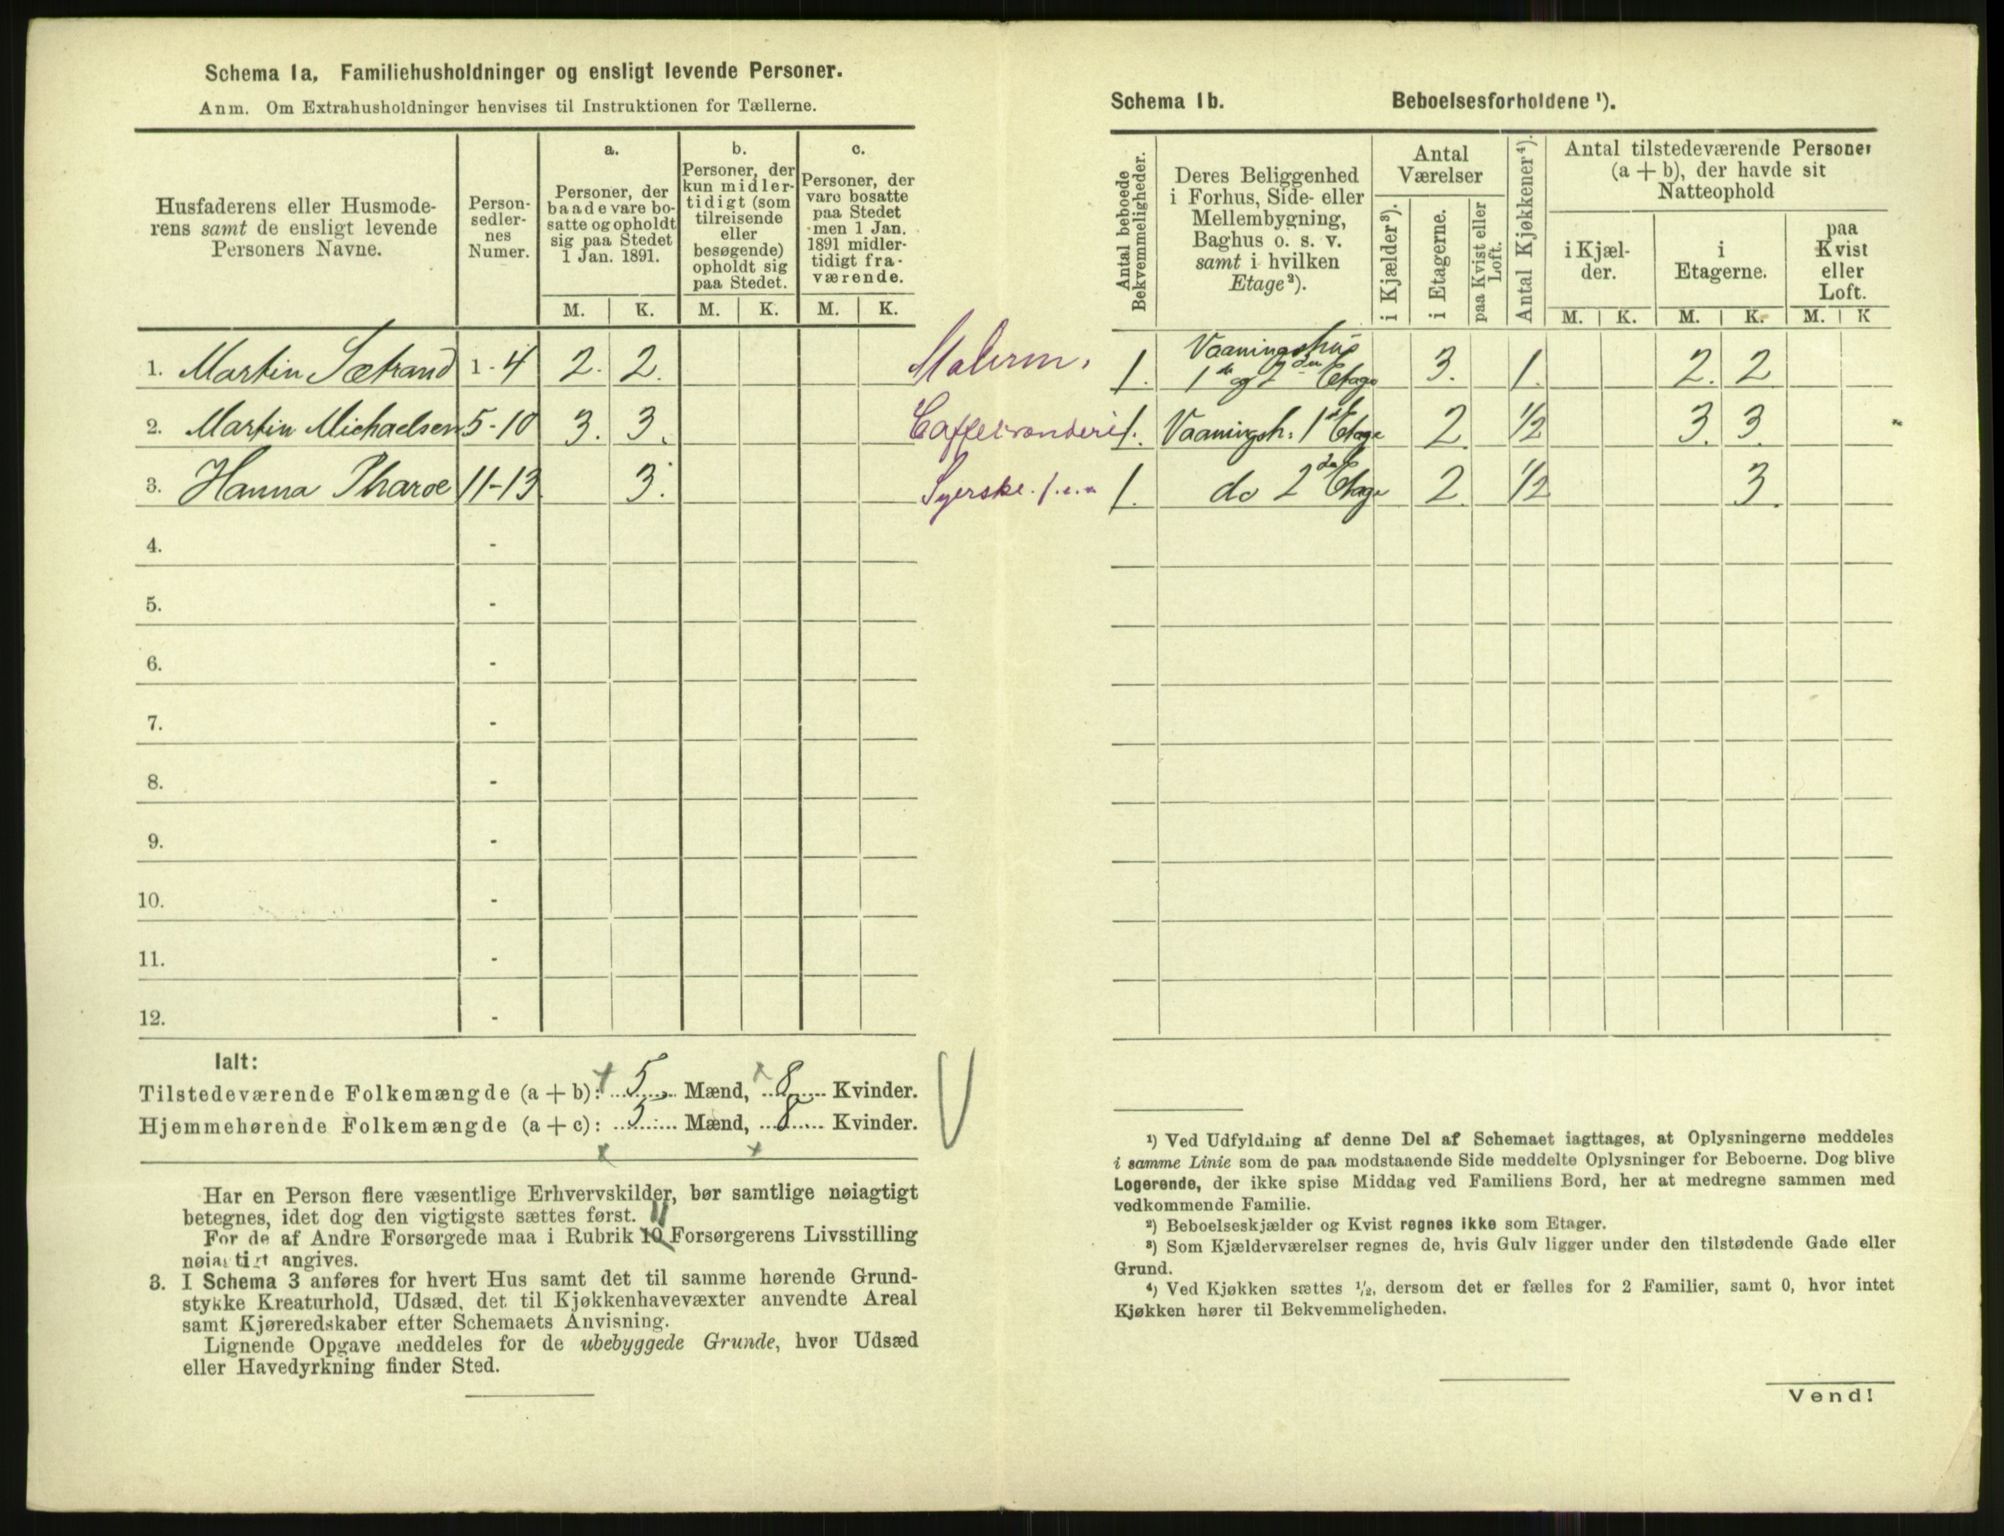 Schema 1a, Familiehusholdninger og ensligt levende Personer.
Anm. Om Extrahusholdninger henvises til Instruktionen for Tællerne.
Husfaderens eller Husmode-
rens samt de ensligt levende
Personers Navne.
Person-
sedler-
nes
Numer.
a.
Personer, der
baade vare bo-
satte og opholdt
sig paa Stedet
1 Jan. 1891.
b.
Personer, der
kun midler-
tidigt (som
tilreisende
eller
besøgende)
opholdt sig
paa Stedet.
c.
Personer, der
vare bosatte
paa Stedet
men 1 Jan.
1891 midler-
tidigt fra-
værende.
M. K. M. K. M. K.
1. Martin Sætrand 1-4 2. 2.
2. Martin Michaelsen 5-10 3. 3.
3. Hanna Pharoe 11-13 3.
4. -
5. -
6. -
7. -
8. -
9. -
10. -
11. -
12. -
Ialt:
Tilstedeværende Folkemængde (a + b): 5 Mænd, 8 Kvinder.
Hjemmehørende Folkemængde (a + c): 5 Mænd, 8 Kvinder.
Har en Person flere væsentlige Erhvervskilder, bør samtlige nøiagtigt
betegnes, idet dog den vigtigste sættes først.
For de af Andre Forsørgede maa i Rubrik 10 Forsørgerens Livsstilling
nøiagtigt angives.
3. I Schema 3 anføres for hvert Hus samt det til samme hørende Grund-
stykke Kreaturhold, Udsæd, det til Kjøkkenhavevæxter anvendte Areal
samt Kjøreredskaber efter Schemaets Anvisning.
Lignende Opgave meddeles for de ubebyggede Grunde, hvor Udsæd
eller Havedyrkning finder Sted.
Schema 1b. Beboelsesforholdene ¹).
Antal beboede
Bekvemmeligheder.
Deres Beliggenhed
i Forhus, Side- eller
Mellembygning,
Baghus o. s. v.
samt i hvilken
Etage²).
Antal
Værelser
i Kjælder³).
i Etagerne.
paa Kvist eller
Loft.
Antal Kjøkkener⁴).
Antal tilstedeværende Personer
(a + b), der havde sit
Natteophold
i Kjæl-
der.
i
Etagerne.
paa
Kvist
eller
Loft.
M. K. M. K. M. K
Malerm. 1. Vaaningshus
1ste og 2den Etage 3. 1. 2. 2
1. Vaaningsh. 1ste Etage 2. 1/2 3. 3.
Syerske 1. do 2den Etage 2. 1/2 3.
¹) Ved Udfyldning af denne Del af Schemaet iagttages, at Oplysningerne meddeles
i samme Linie som de paa modstaaende Side meddelte Oplysninger for Beboerne. Dog blive
Logerende, der ikke spise Middag ved Familiens Bord, her at medregne sammen med
vedkommende Familie.
²) Beboelseskjælder og Kvist regnes ikke som Etager.
³) Som Kjælderværelser regnes de, hvis Gulv ligger under den tilstødende Gade eller
Grund.
⁴) Ved Kjøkken sættes ½, dersom det er fælles for 2 Familier, samt 0, hvor intet
Kjøkken hører til Bekvemmeligheden.
Vend!